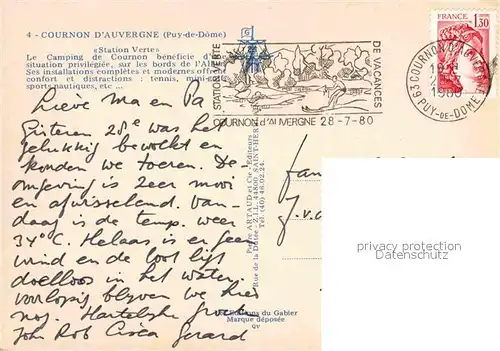 4 - COURNON D'AUVERGNE (Puy-de-Dôme)
«Station Verte»
Le Camping de Cournon bénéficie d'
situation privilégiée, sur les bords de l'All
Ses installations complètes et modernes offrent
confort et distractions : tennis, mini-
sports nautiques, etc ...
STATION VERTE
DE VACANCES
COURNON d'AUVERGNE 28-7-80
FRANCE
1,30
63 COURNON D'AUVERGNE
PUY-DE-DOME
Lieve Ma en Pa
Gisteren 28e was het
gelukkig bewolkt en
konden we toeren. De
omgeving is zeer mooi
en afwisselend. Van-
daag is de temp. weer
34°C. Helaas is er geen
wind en de boot ligt
doelloos in het water.
Voorlopig blijven we hier
nog. Hartelijke groet
John Rob Gerard
Pierre ARTAUD et Cie - Éditeurs
Rue de la Dutée - Z.I.L. 44800 SAINT-HER
Tél. (40) 46.02.2
Editions du Gabier
Marque déposée
GV
fam
J.v.
privacy protection
oldthing.de